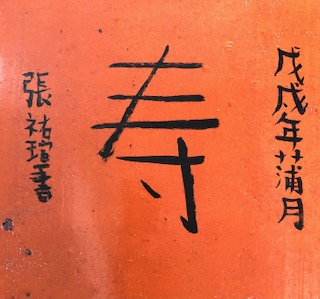 戊戌年蒲月
寿
張祐瑄書